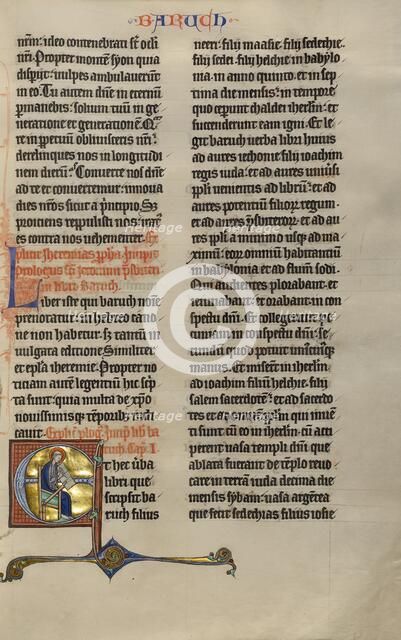 BARUCH
n̄rm: ideo contenebrati s̄t oc̄li
n̄ri. Propter montem syon quia
disp̄ijt: vulpes ambulauerunt
in eo. Tu autem dn̄e in eternū
permanebis: solium tuū in ge
neratione et generationem. Q̄r
e in perpetuū obliuisceris nr̄i:
derelinques nos in longitudi
nem dierū? Conuerte nos dn̄e
ad te et conuertemur: innoua
dies nostros sicut a principio. S;
proiciens reppulisti nos: irat̄
es contra nos uehementer.
in libru Baruch.
Liber iste qui baruch noīe
prenotatur in hebreo cano
ne non habetur. S; tantū in
vulgata editione. Similiter
et epl̄a iheremie. Propter no
titiam autē legentiū hic sc̄p
ta sunt: quia multa de xp̄o
nouissimisq; tēporib; indi
cant.
Et hec ūba
libri que
scripsit ba
ruch filius
neeri: filij maasie: filij sedechie:
filij sedei: filij helchie in babylo
nia: in anno quinto. et in sep
tima die mensis: in tempore
quo ceperunt chaldei ihr̄lm: et
succenderunt eam igni. Et le
git baruch uerba libri huius
ad aures iechonie filij ioachim
regis iuda: et ad aures uniūsi
ppl̄i uenientis ad librū: et ad
aures potentiū filioꝝ regum:
et ad aures p̄sbiteroꝝ. et ad au
res ppl̄i a minimo usq; ad ma
ximū: eorꝫ omniū habitantiū
in babylonia et ad flumē sodi.
Qui audientes plorabant: et
ieiunabant: et orabant in con
spectu dn̄i. Et collegerunt pec
uniam in conspectu dn̄i: se
cundū quod potuit uniūscuiusq;
manus: et miserūt in ihr̄lm
ad ioachim filiū helchie: filij
salem sacerdotē: et ad sacerdo
tes et ad omnē ppl̄m qui inuē
ti sunt cū eo in ihr̄lm: cū acci
perent uasa templi dn̄i que
ablata fuerant de tēplo reuo
care in terrā iuda decima die
mensis syban: uasa argētea
que fecit sedechias filius iosie
heritage
heritage
heritage
heritage
©